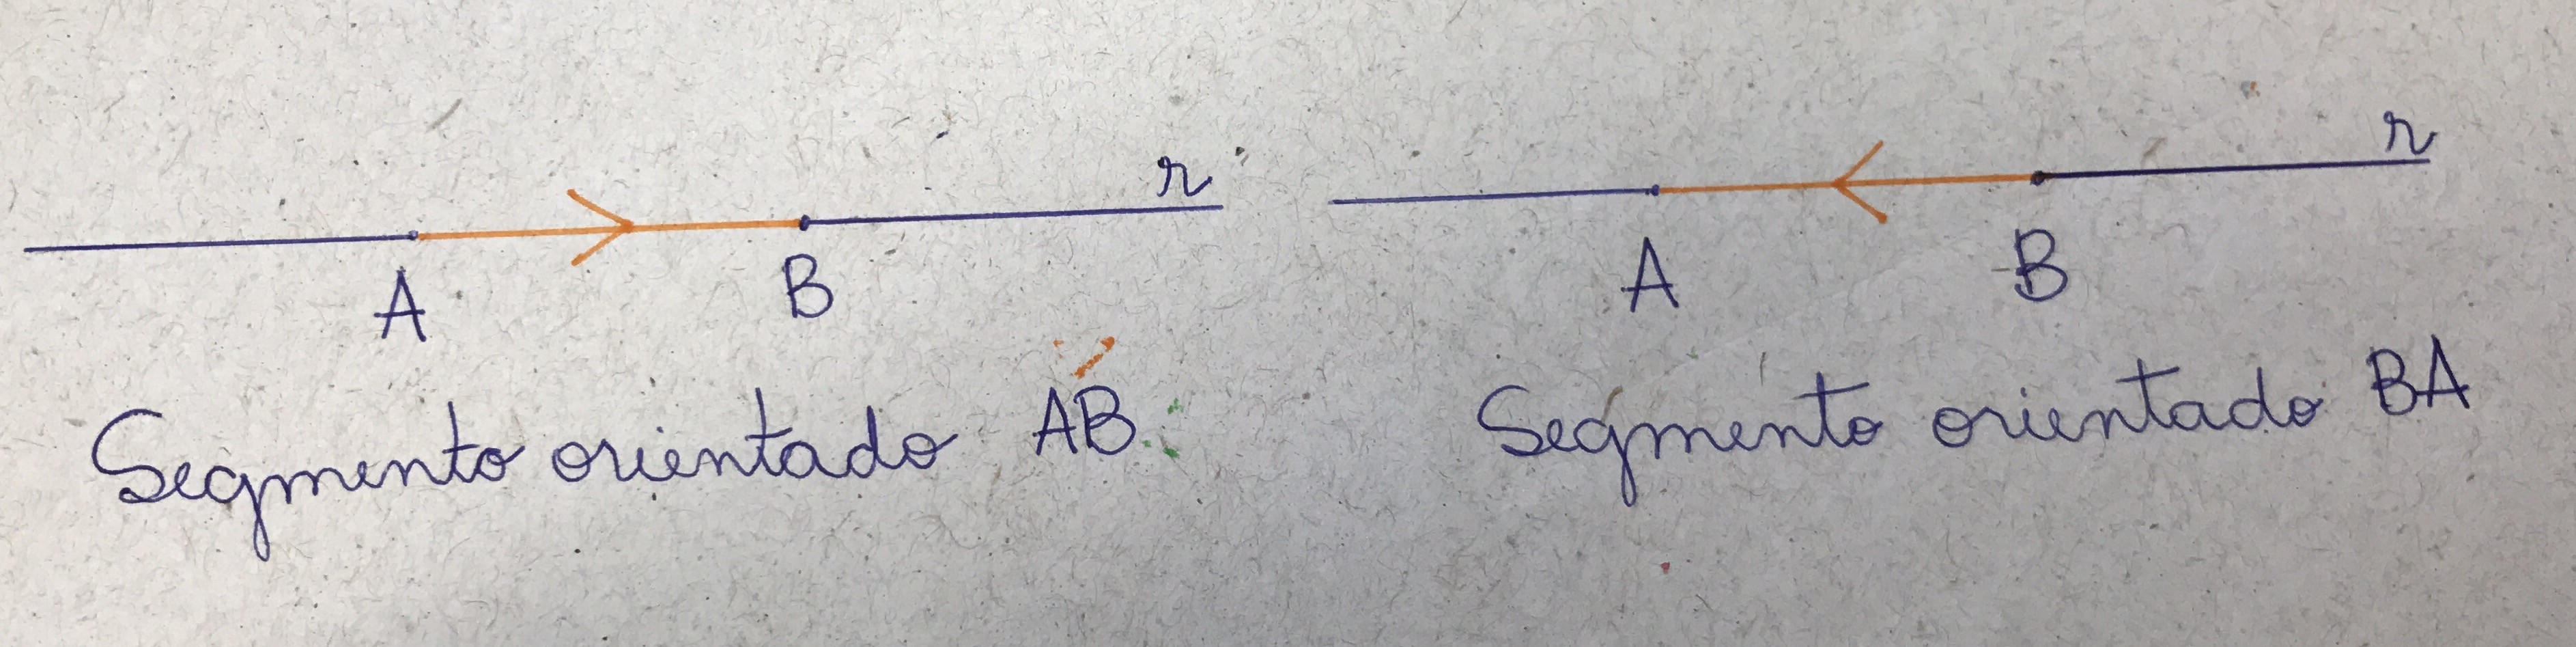 r
A B
Segmento orientado AB
r
A B
Segmento orientado BA